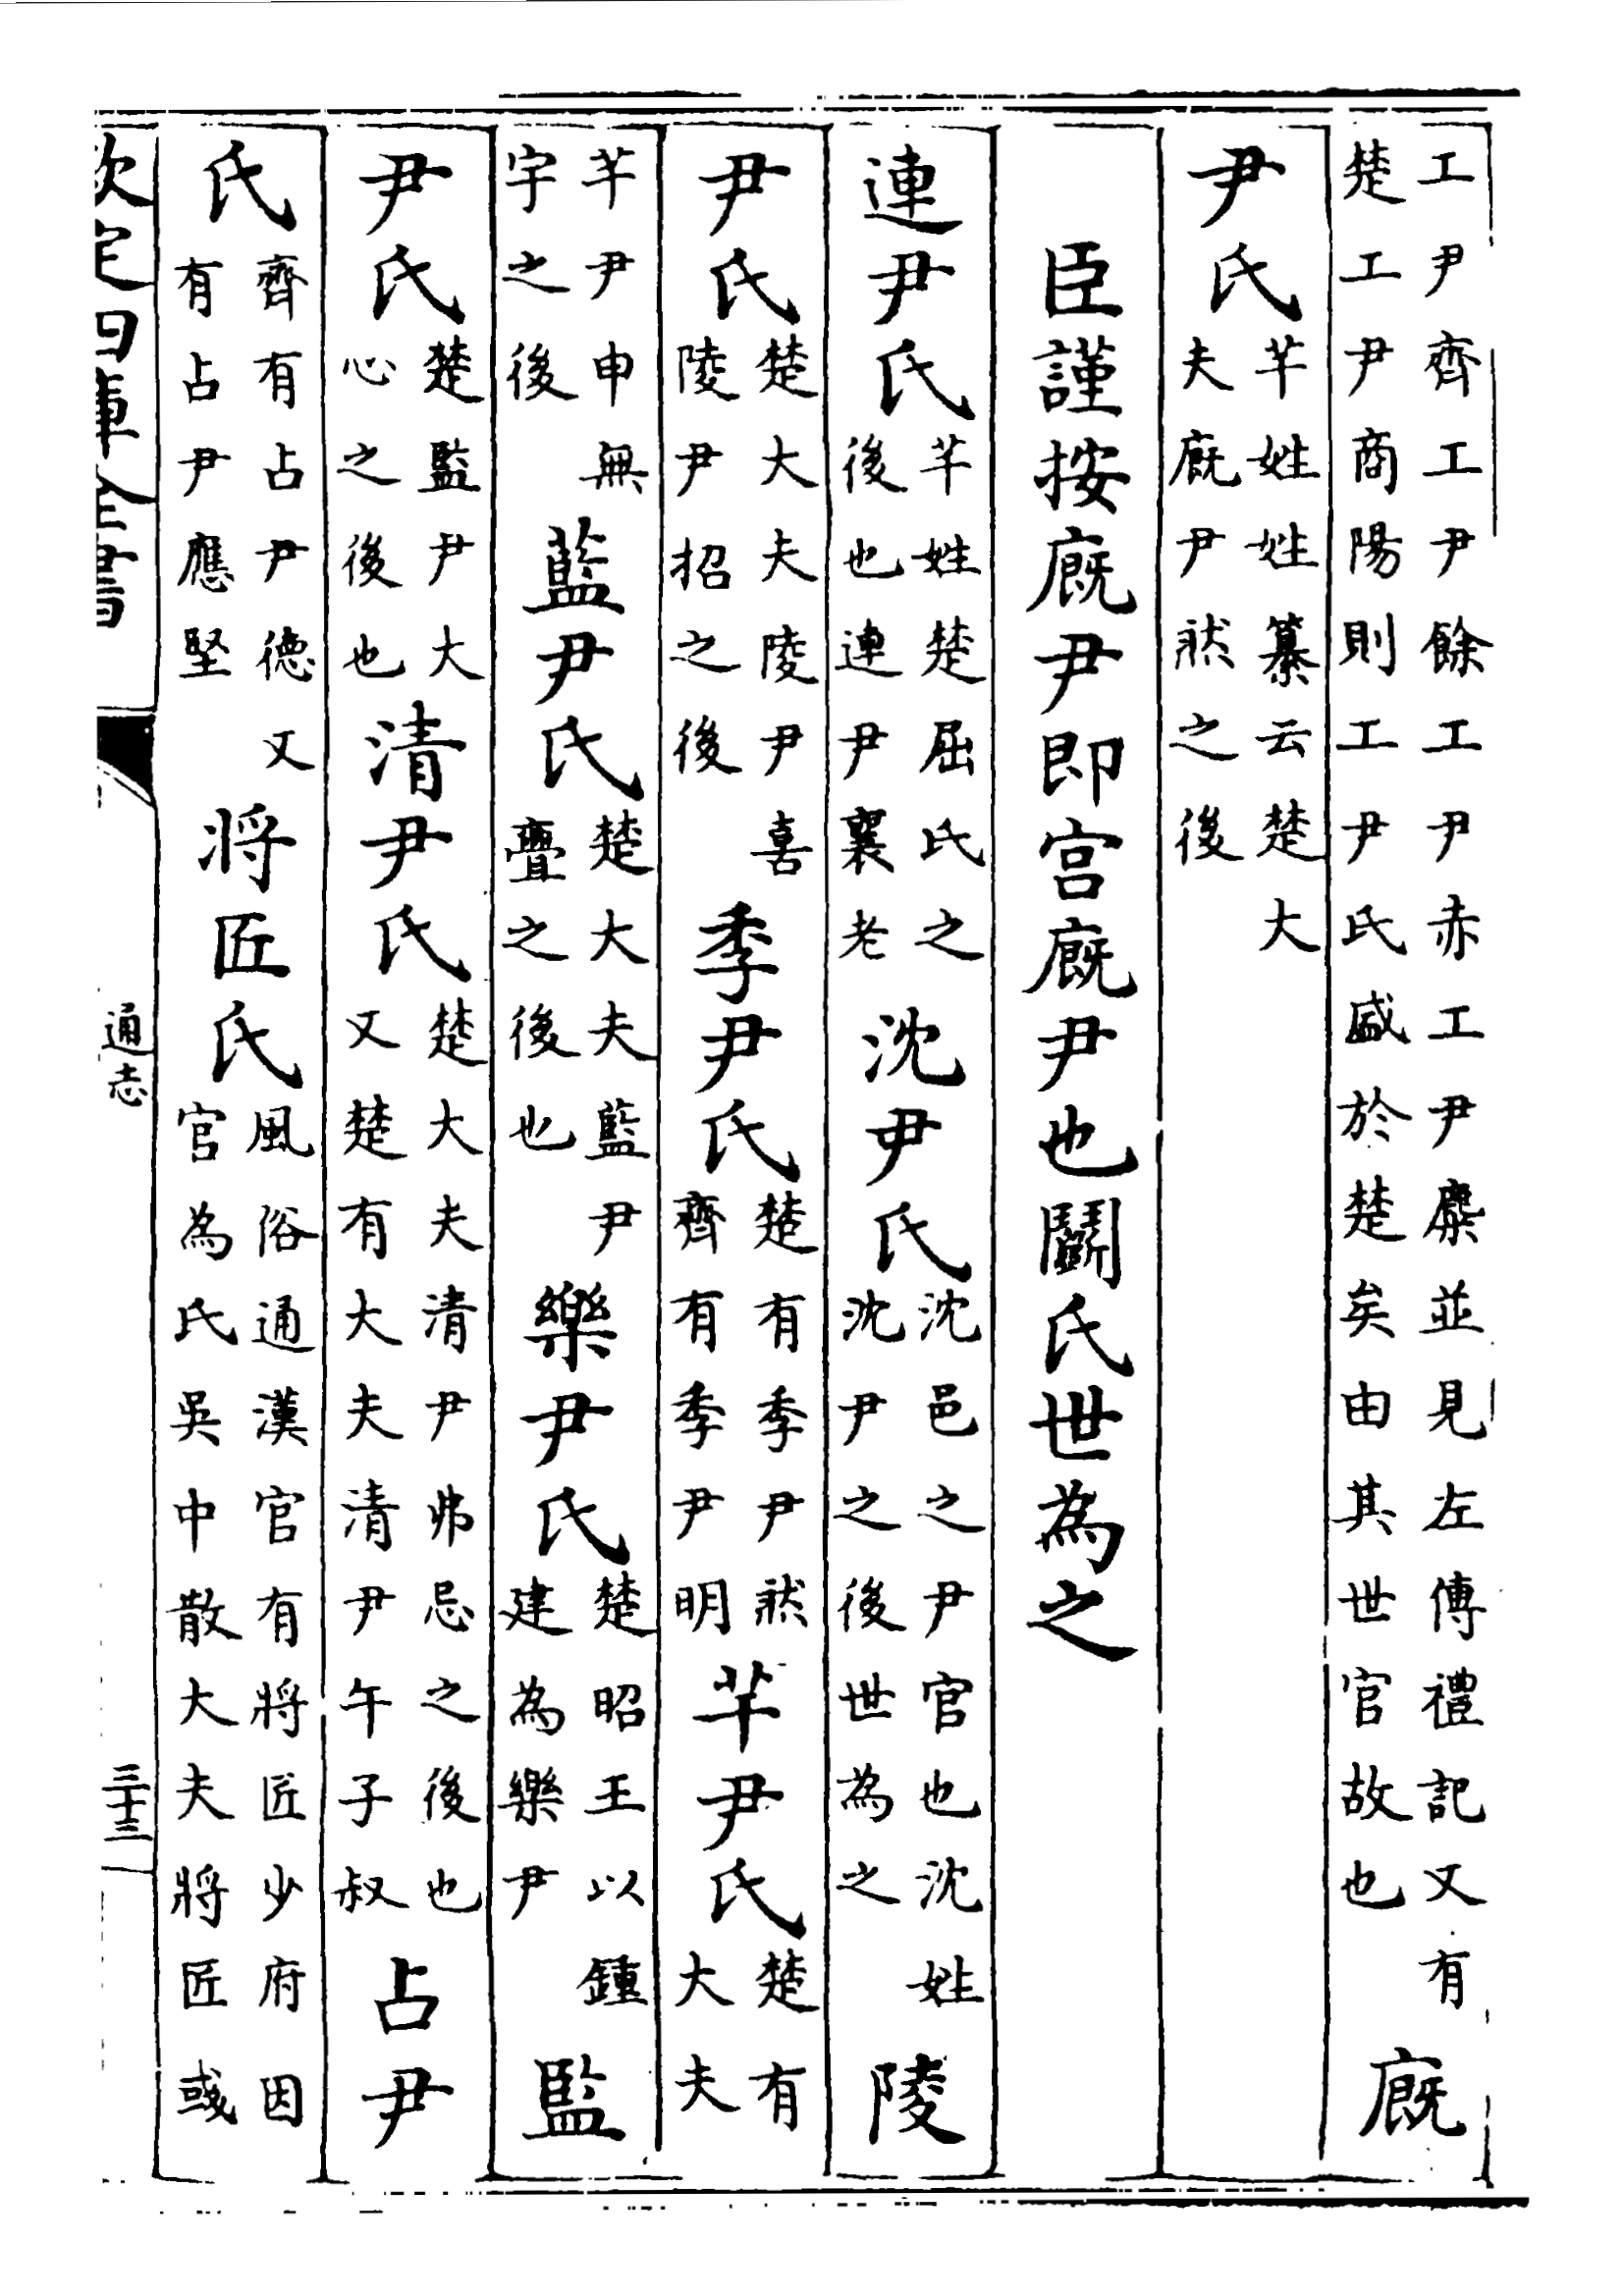 工尹齊工尹餘工尹赤工尹麇並見左傳禮記又有楚工尹商陽則工尹氏盛於楚矣由其世官故也廐
尹氏芊姓姓纂云楚大夫廐尹然之後
臣謹按廐尹即宫廐尹也鬭氏世為之
連尹氏芊姓楚屈氏之後也連尹襄老沈尹氏沈邑之尹官也沈姓沈尹之後世為之陵
尹氏楚大夫陵尹喜陵尹招之後季尹氏楚有季尹然齊有季尹明芊尹氏楚有大夫
芊尹申無宇之後藍尹氏楚大夫藍尹亹之後也樂尹氏楚昭王以鍾建為樂尹監
尹氏楚監尹大心之後也清尹氏楚大夫清尹弗忌之後也又楚有大夫清尹午子叔占尹
氏齊有占尹德又有占尹應堅將匠氏風俗通漢官有將匠少府因官為氏吳中散大夫將匠彧
欽定四庫全書
通志
三十三